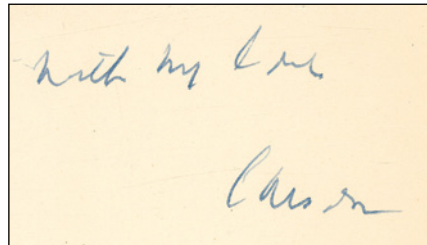 with my love
Carson